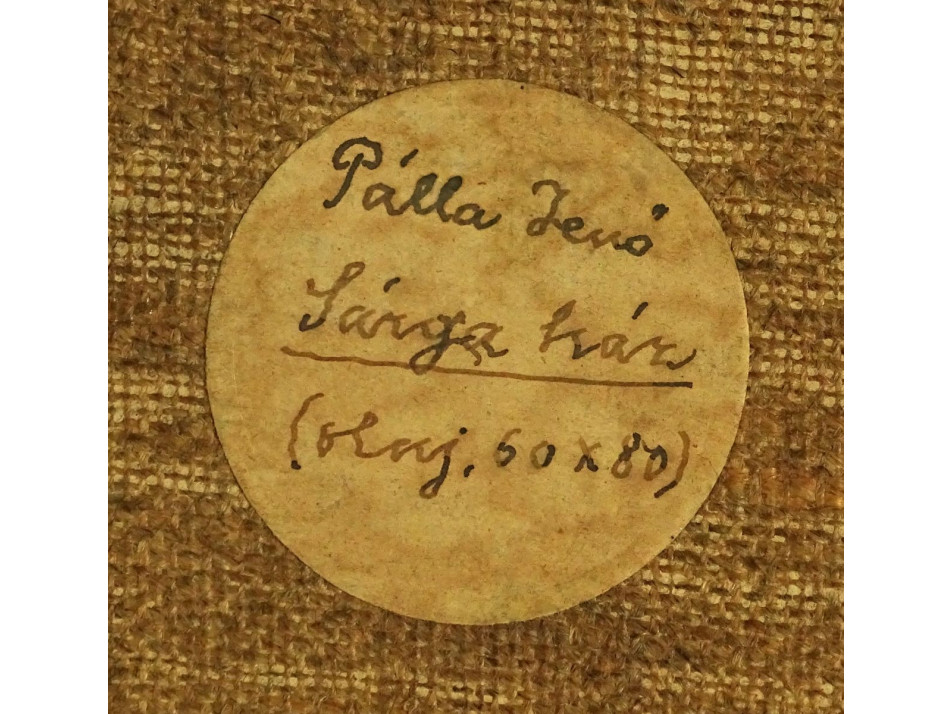 Pálla Jenő
Sárga ház
(olaj, 60x80)